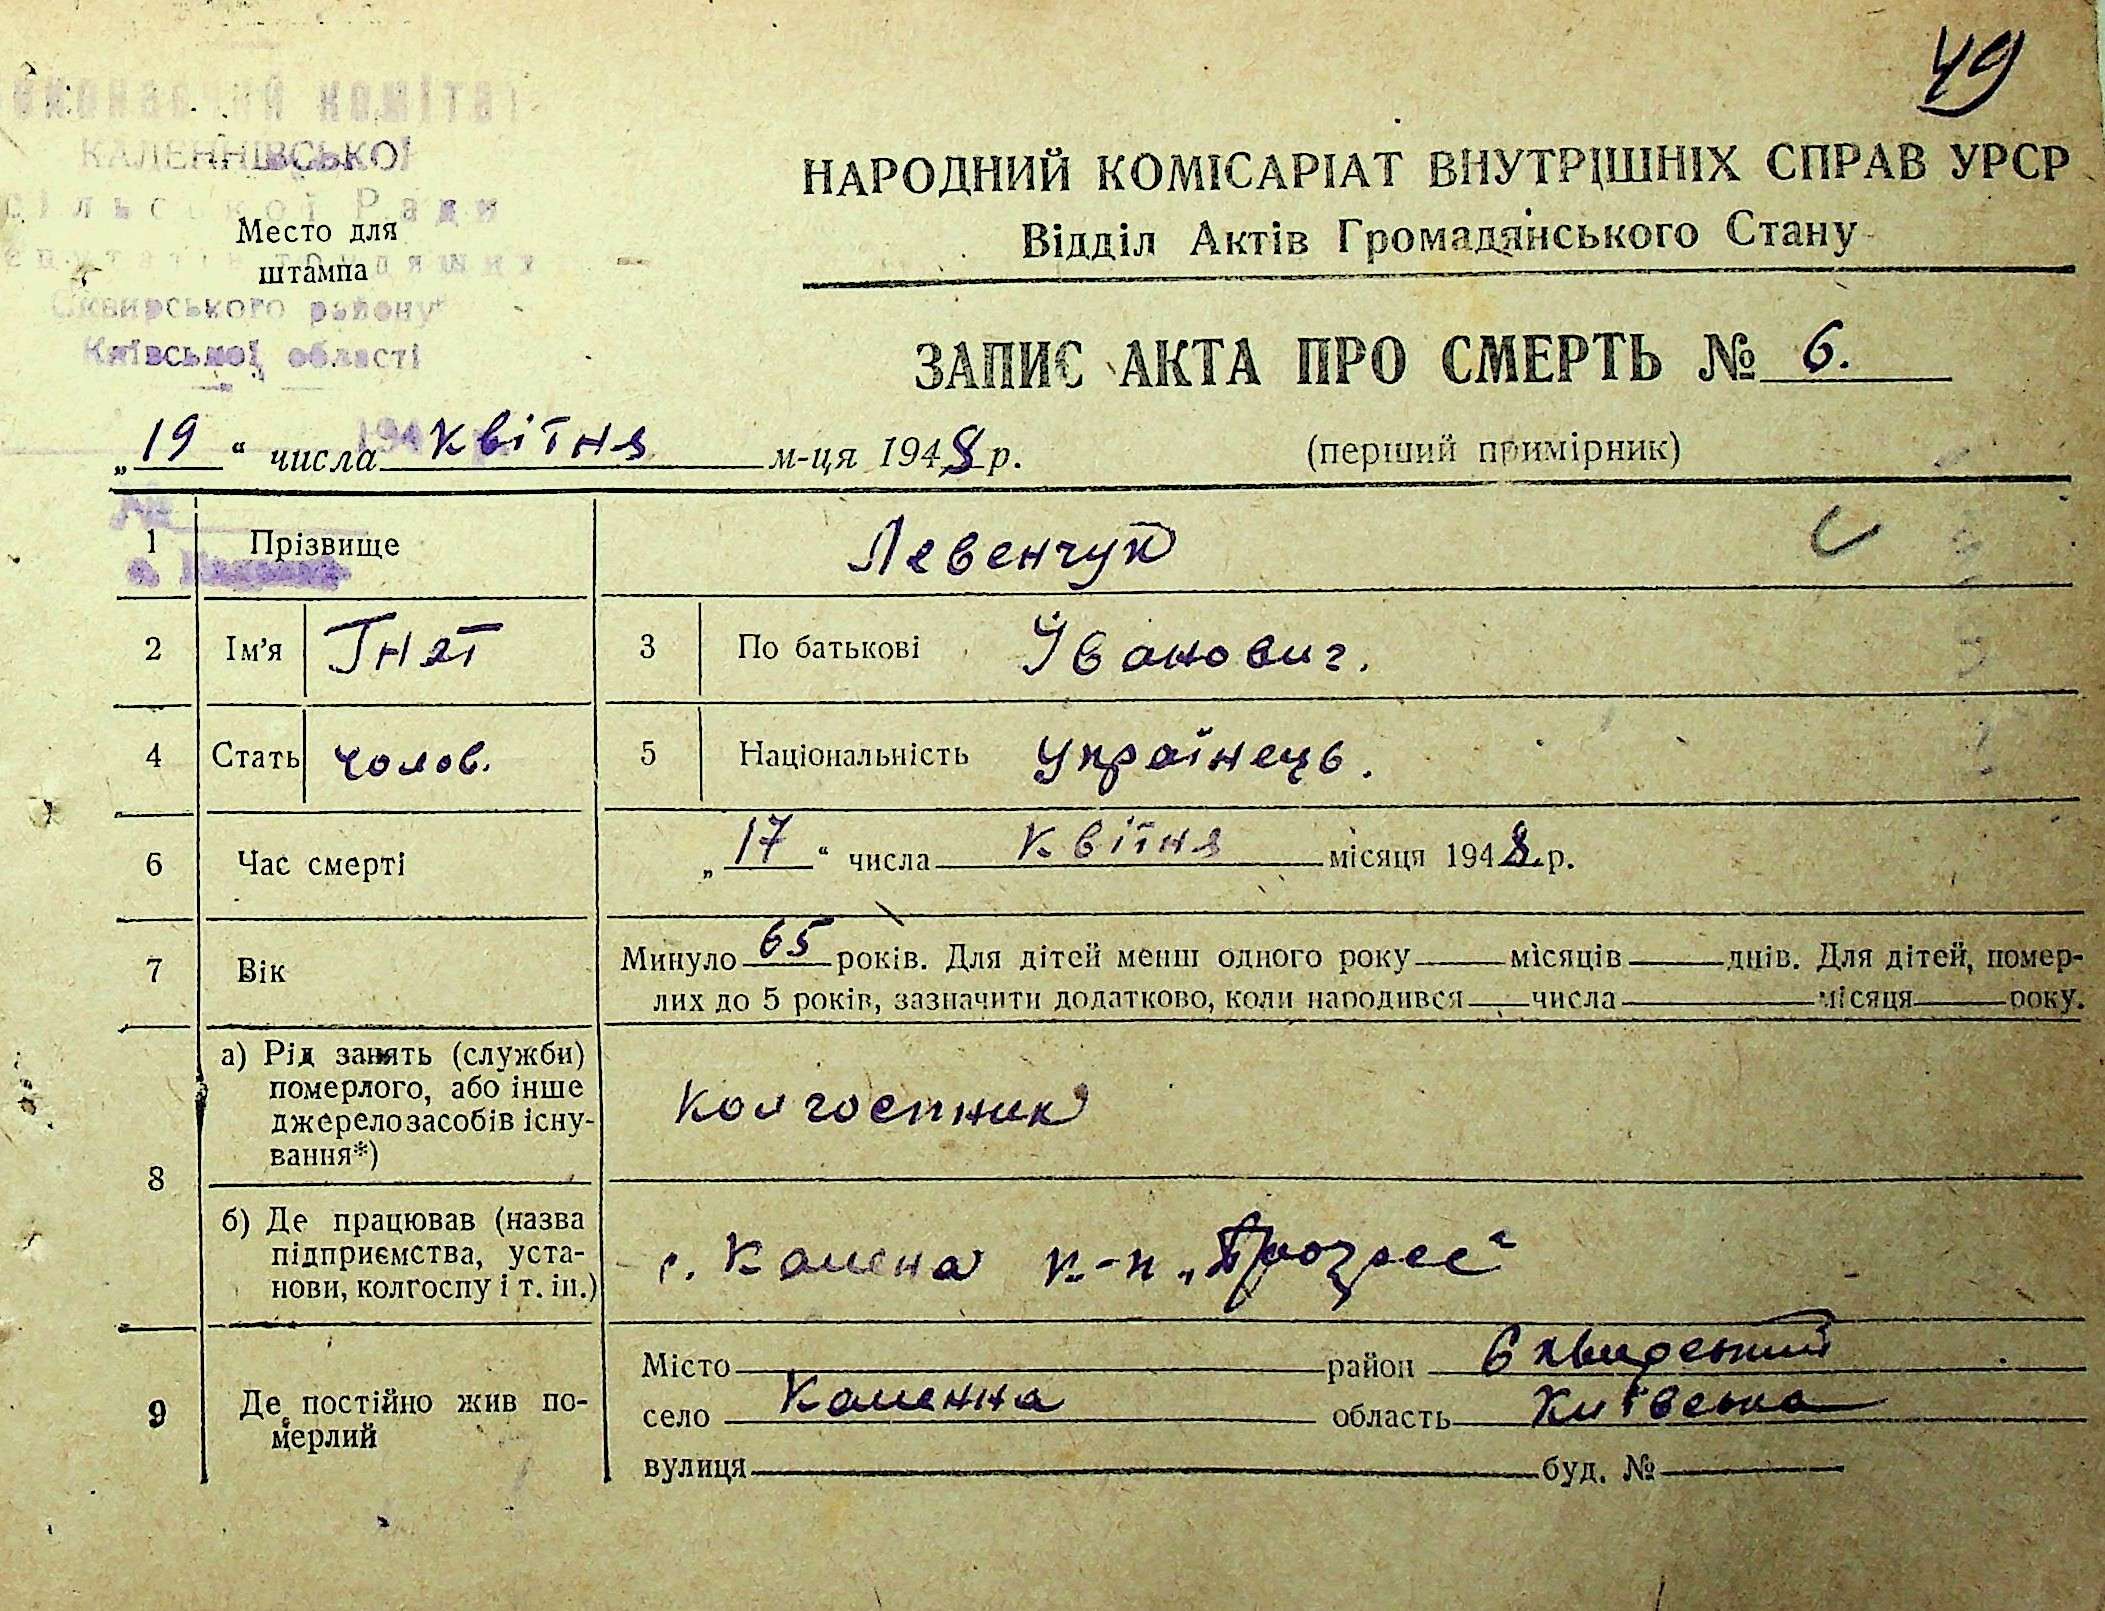 49
КАЛЕННІВСЬКОЇ
сільської Ради
Место для
штампа
Сквирського району
Київської області
НАРОДНИЙ КОМІСАРІАТ ВНУТРІШНІХ СПРАВ УРСР
Відділ Актів Громадянського Стану
ЗАПИС АКТА ПРО СМЕРТЬ № 6.
„19“ числа квітня м-ця 1948 р.
(перший примірник)
1 Прізвище Левенчук
2 Ім'я Гнат 3 По батькові Іванович.
4 Стать чолов. 5 Національність українець.
6 Час смерті „17“ числа квітня місяця 1948 р.
7 Вік Минуло 65 років. Для дітей менш одного року місяців днів. Для дітей, помер-
лих до 5 років, зазначити додатково, коли народився числа місяця року.
8 а) Рід занять (служби)
померлого, або інше
джерело засобів існу-
вання*)
колгоспник
б) Де працював (назва
підприємства, уста-
нови, колгоспу і т. ін.)
с. Калена к-п „Прогрес“
9 Де постійно жив по-
мерлий
Місто район Сквирський
село Каленна область Київська
вулиця буд. №